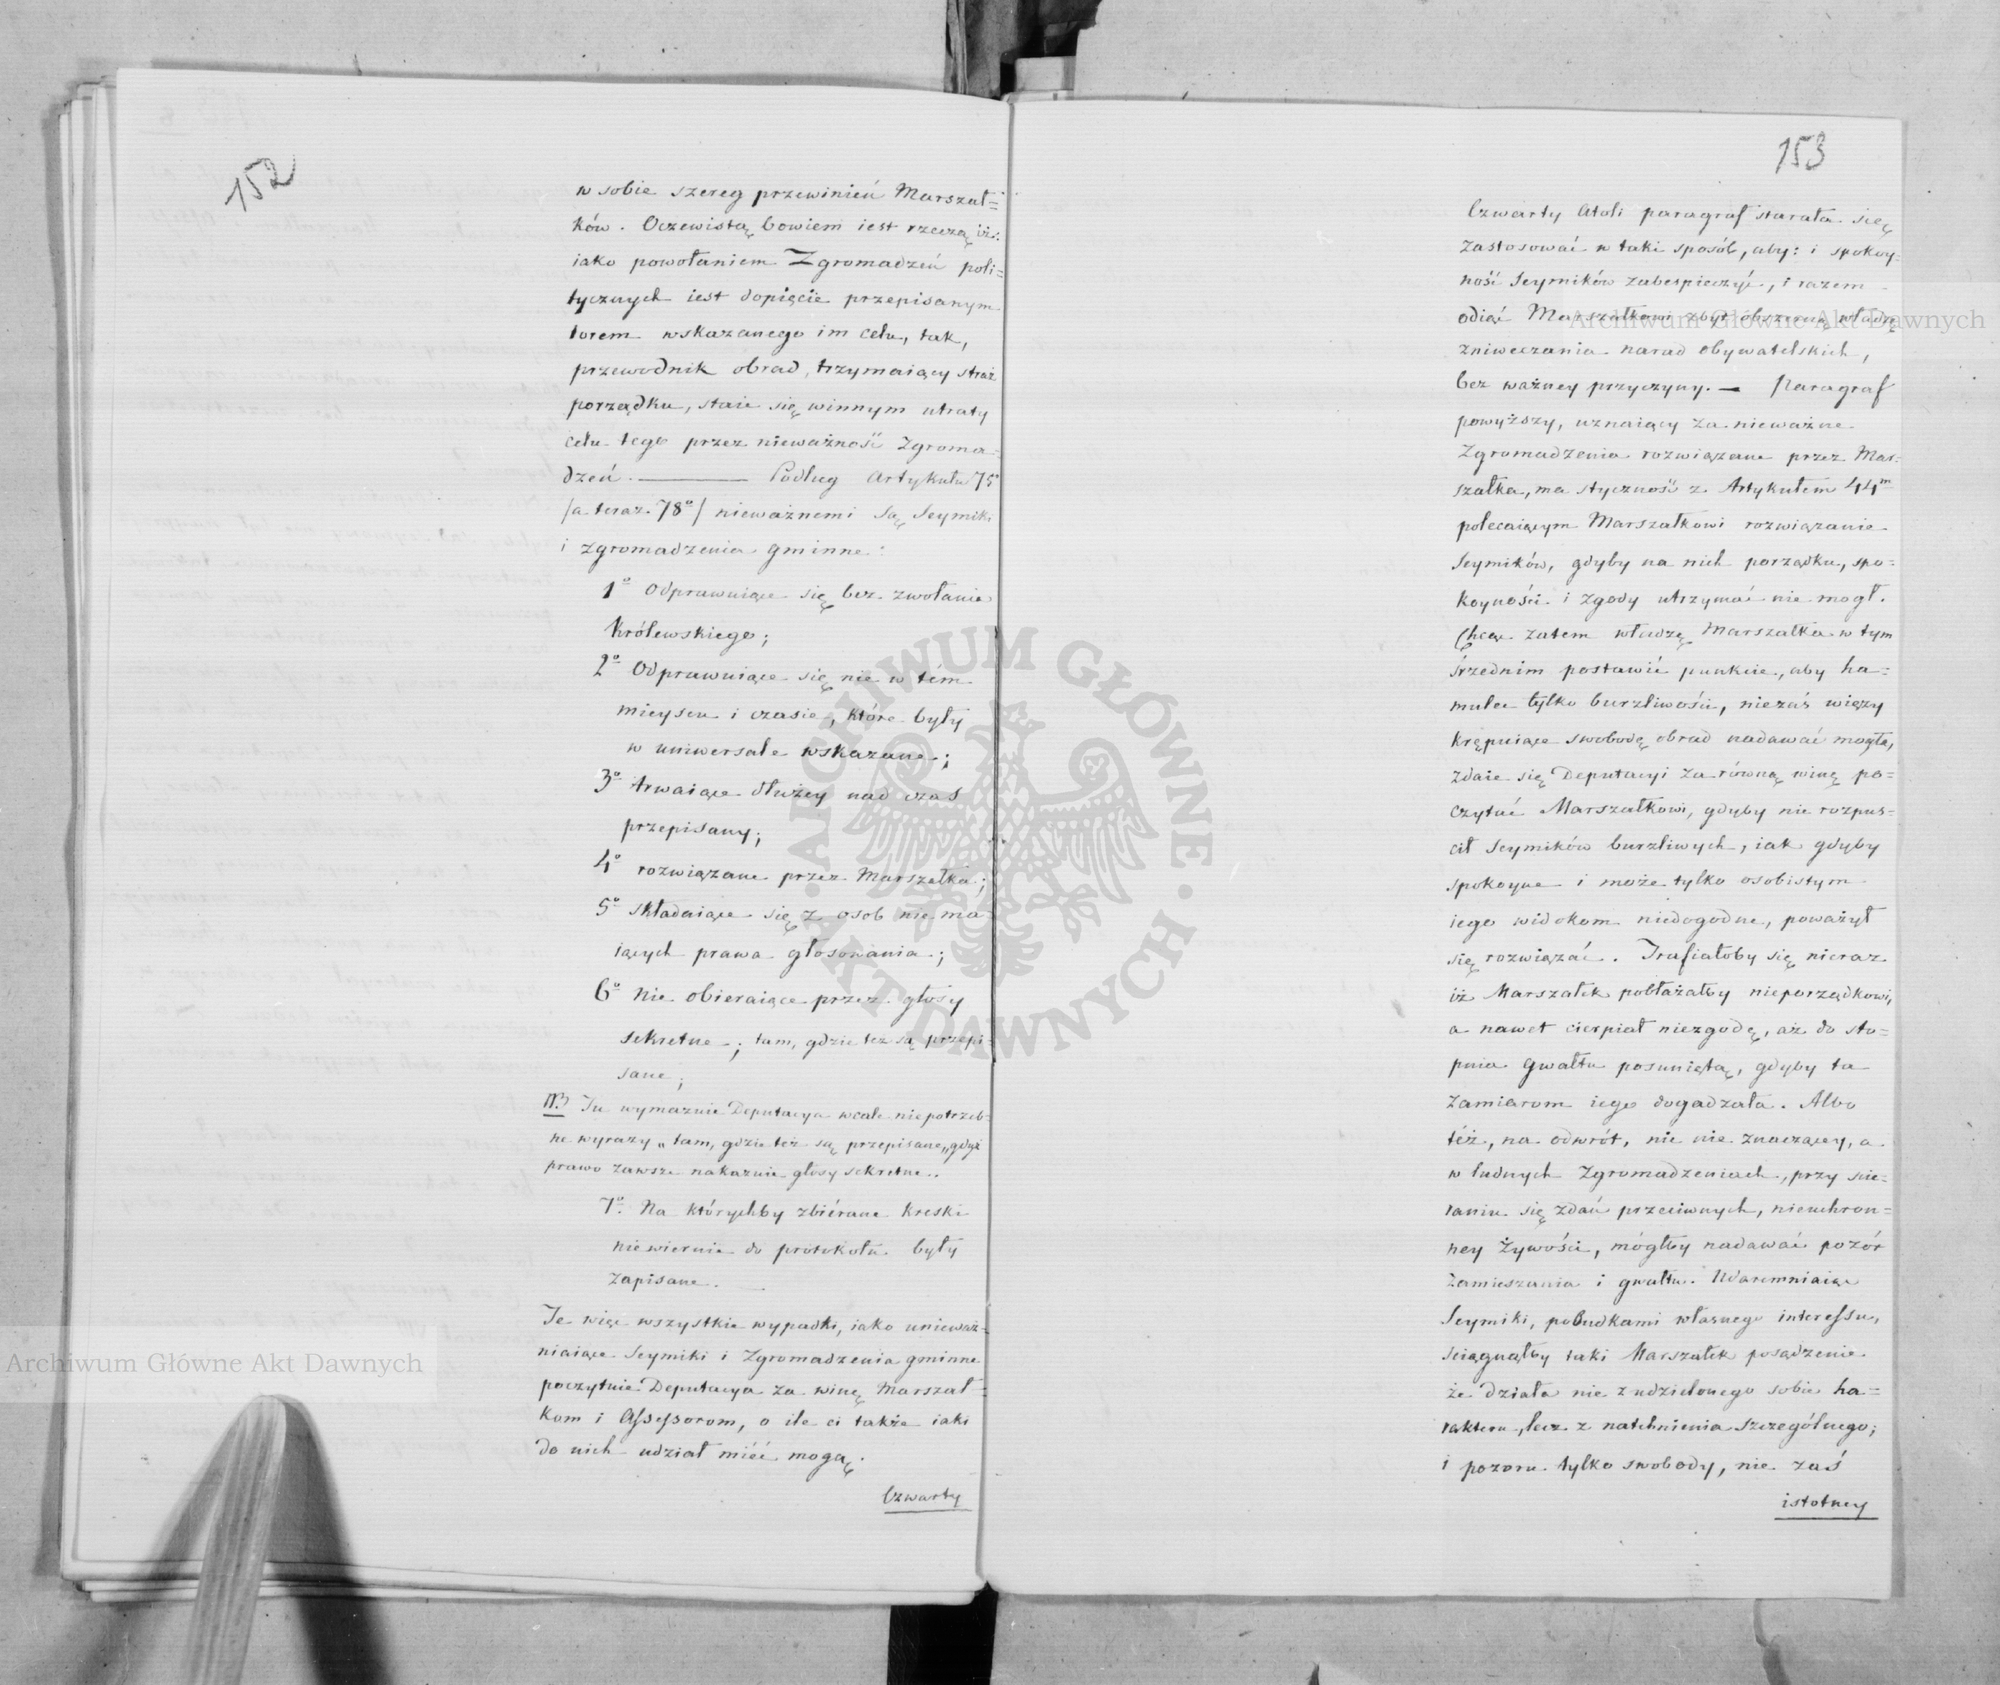 152
w sobie szereg przewinień Marszał=
ków. Oczewistą bowiem iest rzeczą iż:
iako powołaniem Zgromadzeń poli=
tycznych iest dopięcie przepisanym
torem wskazanego im celu, tak,
przewodnik obrad, trzymaiący straż
porządku, staie się winnym utraty
celu tego przez nieważność Zgroma=
dzeń. ——— Podług Artykułu 75º
/a teraz 78º/ nieważnemi są Seymiki
i zgromadzenia gminne:
1º Odprawuiące się bez zwołania
Królewskiego;
2º Odprawuiące się nie w tém
mieyscu i czasie, które były
w uniwersale wskazane;
3º trwaiące dłużey nad czas
przepisany;
4º rozwiązane przez Marszałka;
5º składaiące się z osob nie ma
iących prawa głosowania;
6º Nie obieraiące przez głosy
sekretne; tam, gdzie też są przepi=
sane;
NB Tu wymaznie Deputacya wcale niepotrzeb=
ne wyrazy „tam, gdzie też są przepisane„ gdyż
prawo zawsze nakazuie głosy sekretne..
7º. Na którychby zbiérane kreski
niewiernie do protokołu były
zapisane.
Te więc wszystkie wypadki, iako unieważ=
niaiące Seymiki i Zgromadzenia gminne
poczytuie Deputacya za winę Marszał=
kom i Assessorom, o ile ci także iaki
do nich udział miéć mogą.
Czwarty
153
Czwarty Atoli paragraf starała się
zastosować w taki sposób, aby: i spokoy=
ność Seymików zabespieczyć, i razem
odiąć Marszałkowi zbyt obszerną władzę
zniweczania narad obywatelskich,
bez ważney przyczyny. — Paragraf
powyższy, uznaiący za nieważne
Zgromadzenia rozwiązane przez Mar=
szałka, ma styczność z Artykułem 44m
polecaiącym Marszałkowi rozwiązanie
Seymików, gdyby na nich porządku, spo=
koyności i zgody utrzymać nie mogł.
Chcąc zatem władzę Marszałka w tym
śrzednim postawić punkcie, aby ha=
mulec tylko burzliwości, niezaś więzy
krępuiące swobodę obrad nadawać mogła,
zdaie się Deputacyi za równą winę po=
czytać Marszałkowi, gdyby nie rozpus=
cił Seymików burzliwych, iak gdyby
spokoyne i może tylko osobistym
iego widokom niedogodne, poważył
się rozwiązać. Trafiałoby się nieraz
iż Marszałek pobłażałby nieporządkowi,
a nawet cierpiał niezgodę, aż do sto=
pnia gwałtu posuniętą, gdyby ta
zamiarom iego dogadzała. Albo
też, na odwrót, nic nie znaczącey, a
w ludnych Zgromadzeniach, przy ście=
raniu się zdań przeciwnych, nieuchron=
ney żywości, mógłby nadawać pozór
zamieszania i gwałtu. Udaremniaiąc
Seymiki, pobudkami własnego interessu,
sciągnąłby taki Marszałek posądzenie
że działa nie z udzielonego sobie ha=
rakteru, lecz z natchnienia szczególnego;
i pozoru tylko swobody, nie zaś
istotney
Archiwum Główne Akt Dawnych
Archiwum Główne Akt Dawnych
ARCHIWUM GŁÓWNE · AKT DAWNYCH ·